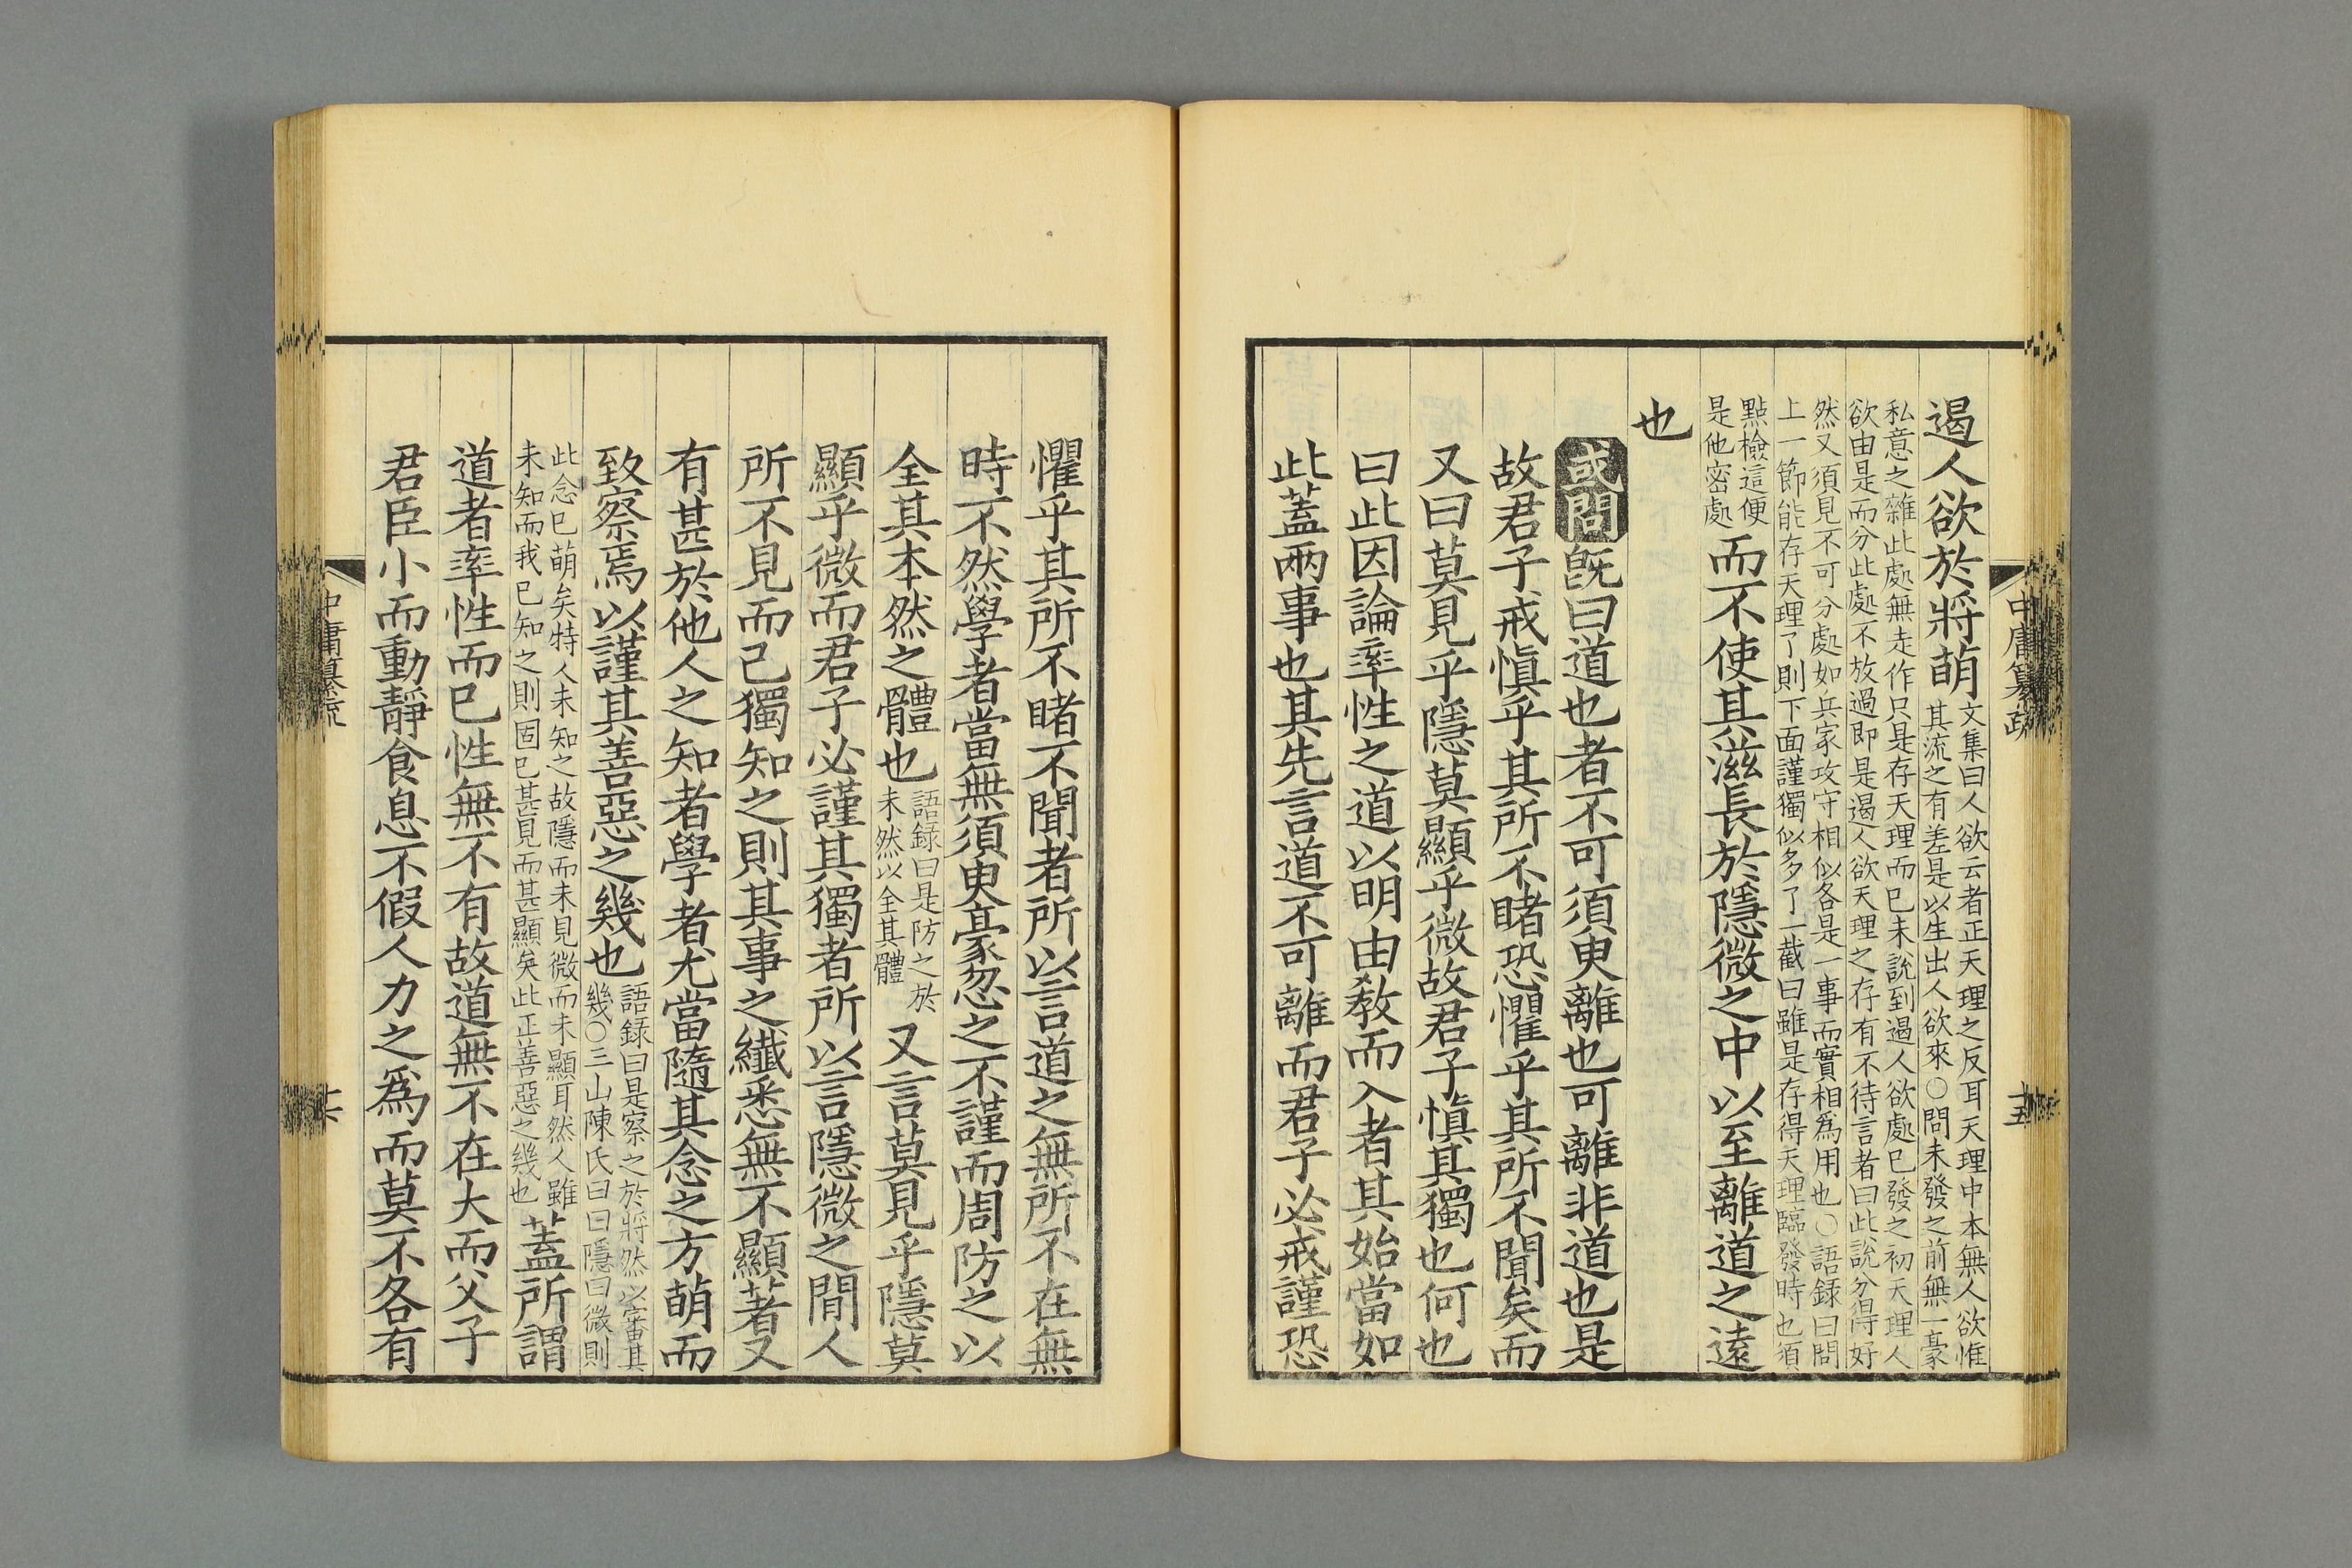 中庸纂疏
十五
遏人欲於將萌
文集曰人欲云者正天理之反耳天理中本無人欲惟
其流之有差是以生出人欲來○問未發之前無一豪
私意之雜此處無走作只是存天理而已未說到遏人欲處已發之初天理人
欲由是而分此處不放過即是遏人欲天理之存有不待言者曰此說分得好
然又須見不可分處如兵家攻守相似各是一事而實相為用也○語録曰問
上一節能存天理了則下面謹獨似多了一截曰雖是存得天理臨發時也須
點檢這便
是他密處
而不使其滋長於隱微之中以至離道之遠
也
或問旣曰道也者不可須臾離也可離非道也是
故君子戒慎乎其所不睹恐懼乎其所不聞矣而
又曰莫見乎隱莫顯乎微故君子慎其獨也何也
曰此因論率性之道以明由敎而入者其始當如
此蓋兩事也其先言道不可離而君子必戒謹恐
懼乎其所不睹不聞者所以言道之無所不在無
時不然學者當無須臾豪忽之不謹而周防之以
全其本然之體也
語録曰是防之於
未然以全其體
又言莫見乎隱莫
顯乎微而君子必謹其獨者所以言隱微之間人
所不見而己獨知之則其事之纖悉無不顯著又
有甚於他人之知者學者尤當隨其念之方萌而
致察焉以謹其善惡之幾也
語録曰是察之於將然以審其
幾○三山陳氏曰曰隱曰微則
此念已萌矣特人未知之故隱而未見微而未顯耳然人雖
未知而我已知之則固已甚見而甚顯矣此正善惡之幾也
蓋所謂
道者率性而已性無不有故道無不在大而父子
君臣小而動靜食息不假人力之爲而莫不各有
中庸纂疏
十六